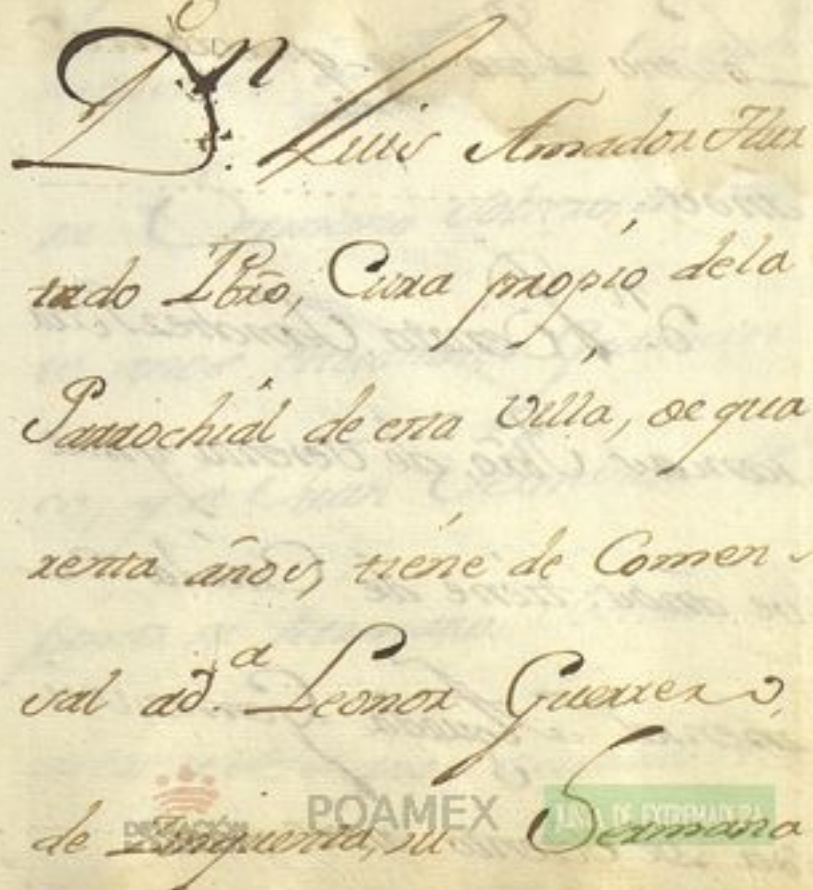 Dⁿ. Luis Amador Hur
tado Pbrō, Cura propio dela
Parrochiál de esta Villa, de qua
renta años, tiene de Comen
sal ad.ª Leonor Guerrero,
de Zinquenta, su Hermana
DIPUTACIÓN
POAMEX
JUNTA DE EXTREMADURA